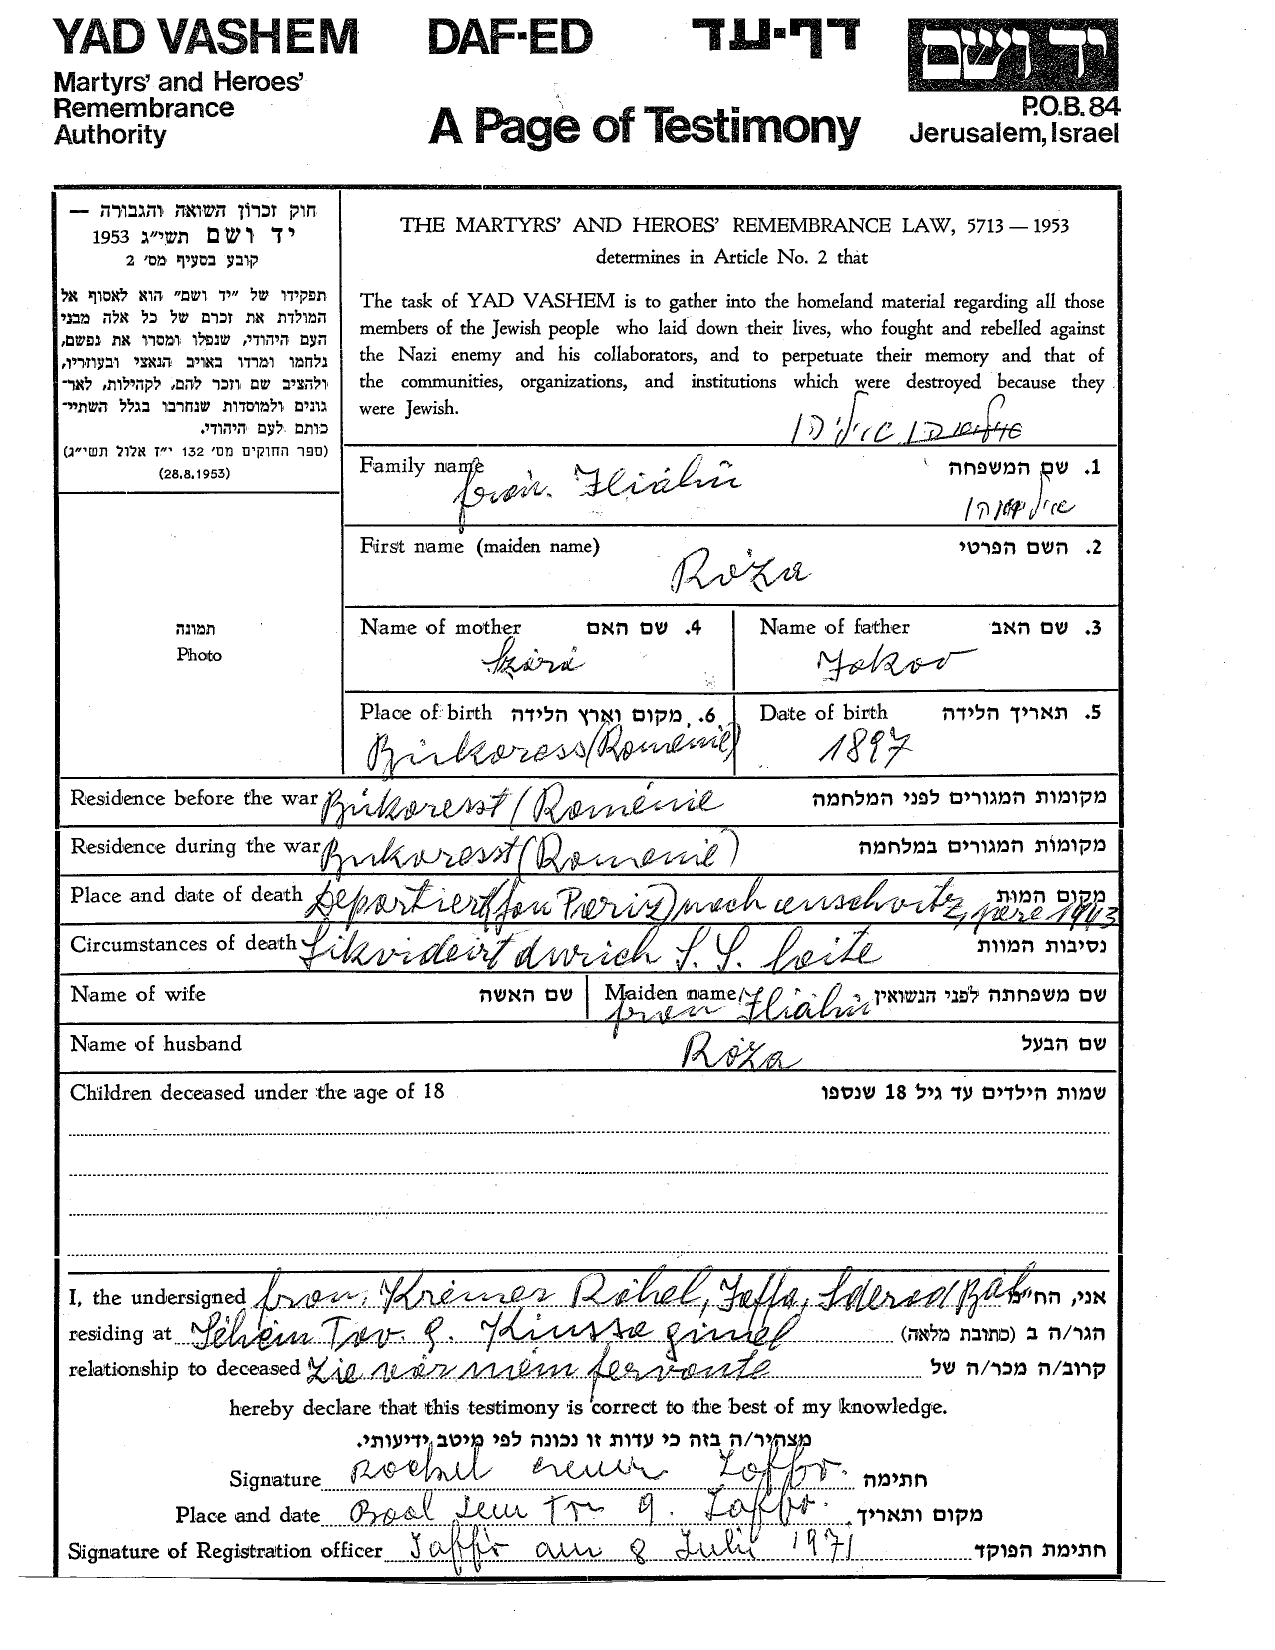 YAD VASHEM DAF-ED דף-עד יד ושם
Martyrs' and Heroes'
Remembrance
Authority
A Page of Testimony
P.O.B. 84
Jerusalem, Israel
חוק זכרון השואה והגבורה —
יד ושם תשי״ג 1953
קובע בסעיף מס׳ 2
תפקידו של ״יד ושם״ הוא לאסוף אל
המולדת את זכרם של כל אלה מבני
העם היהודי, שנפלו ומסרו את נפשם,
נלחמו ומרדו באויב הנאצי ובעוזריו,
ולהציב שם וזכר להם, לקהילות, לאר־
גונים ולמוסדות שנחרבו בגלל השתיי־
כותם לעם היהודי.
(ספר החוקים מס׳ 132 י״ז אלול תשי״ג)
(28.8.1953)
תמונה
Photo
THE MARTYRS' AND HEROES' REMEMBRANCE LAW, 5713 — 1953
determines in Article No. 2 that
The task of YAD VASHEM is to gather into the homeland material regarding all those
members of the Jewish people who laid down their lives, who fought and rebelled against
the Nazi enemy and his collaborators, and to perpetuate their memory and that of
the communities, organizations, and institutions which were destroyed because they
were Jewish.
Family name 1. שם המשפחה
First name (maiden name) 2. השם הפרטי
Róza
Name of mother 4. שם האם Name of father 3. שם האב
Jakov
Place of birth 6. מקום וארץ הלידה Date of birth 5. תאריך הלידה
Búkoress (Roménie) 1897
Residence before the war Búkoresst (Roménie מקומות המגורים לפני המלחמה
Residence during the war Bukoresst (Romenie) מקומות המגורים במלחמה
Place and date of death Departiert (fon Pariz) noch auschvitz, 1943 מקום המות
Circumstances of death Likvideirt durich S. S. leite נסיבות המוות
Name of wife שם האשה Maiden name שם משפחתה לפני הנשואין
Name of husband Róza שם הבעל
Children deceased under the age of 18 שמות הילדים עד גיל 18 שנספו
I, the undersigned Kremer Ráhel, Jaffa, Sderod אני, הח״מ
residing at Tov 9. gimel הגר/ה ב (כתובת מלאה)
relationship to deceased Zie wár mein fervante קרוב/ה מכר/ה של
hereby declare that this testimony is correct to the best of my knowledge.
מצהיר/ה בזה כי עדות זו נכונה לפי מיטב ידיעותי.
Signature חתימה
Place and date 9. מקום ותאריך
Signature of Registration officer am 8 Julii 1971 חתימת הפוקד